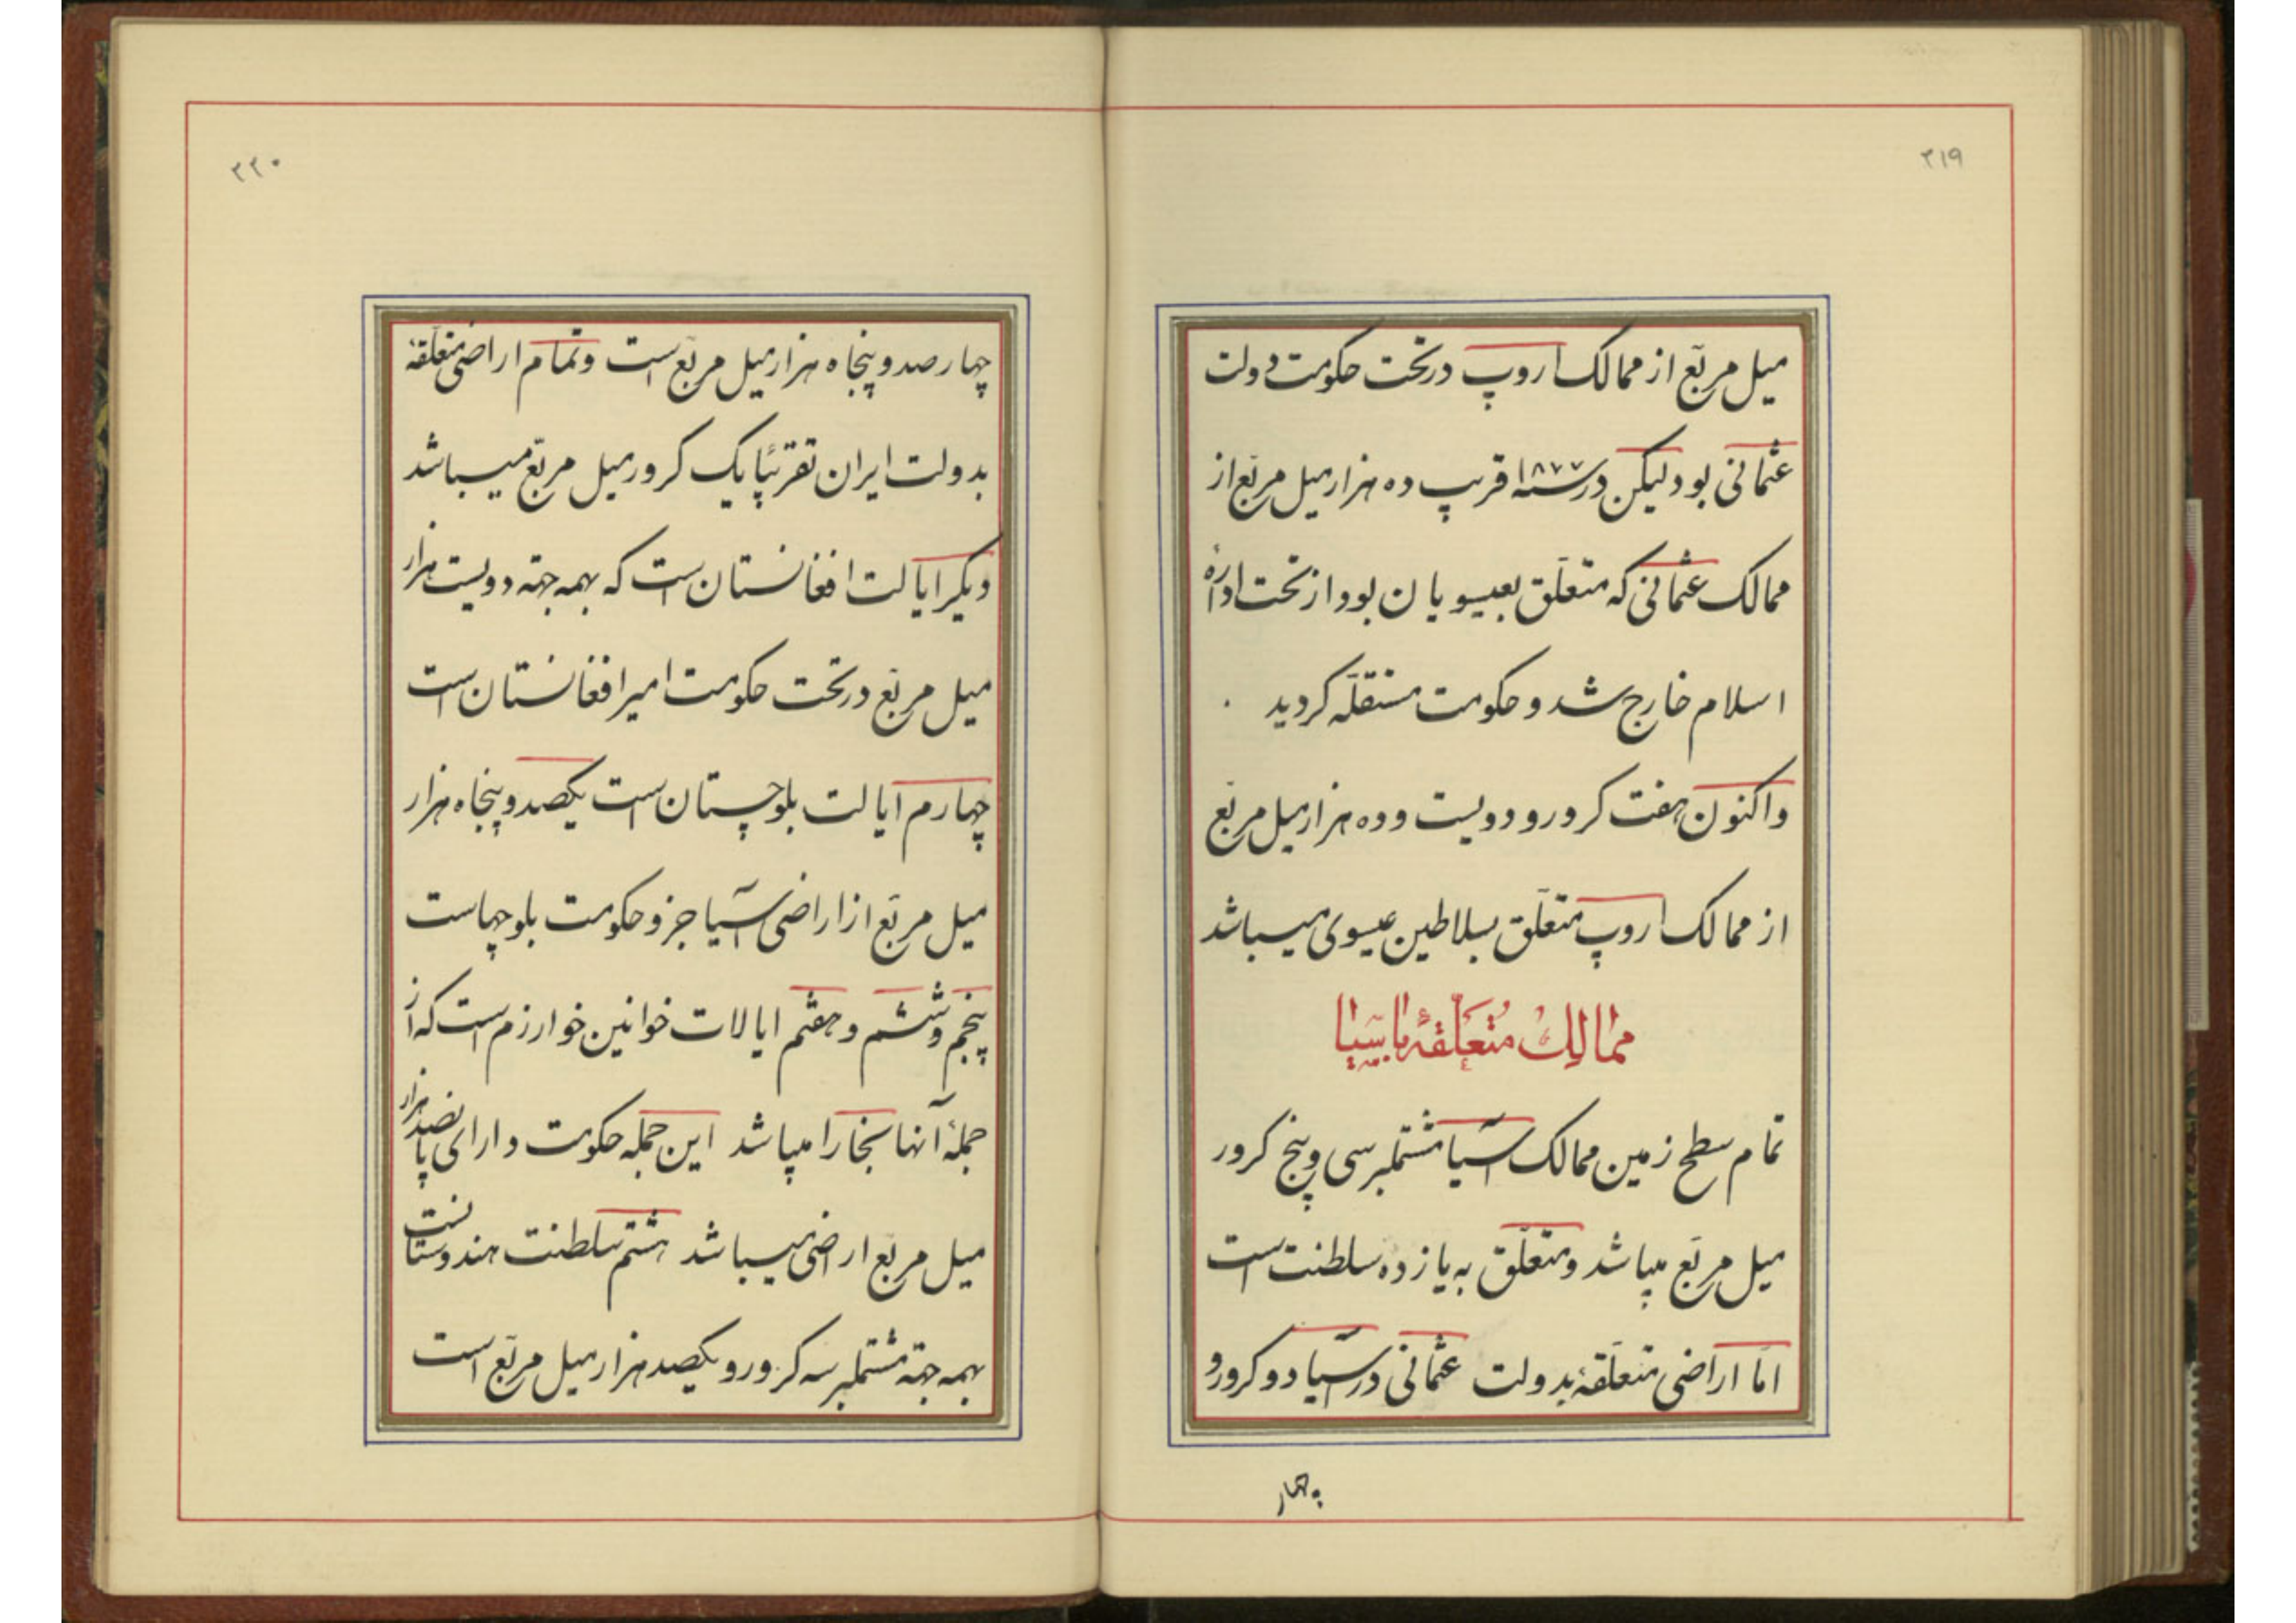 ۲۱۹
میل مربّع از ممالک اروپ در تحت حکومت دولت
عثمانی بود لیکن در سنه ۱۸۷۷ قریب ده هزار میل مربّع از
ممالک عثمانی که متعلّق بعیسویان بود از تحت ادارهٔ
اسلام خارج شد و حکومت مستقلّه گردید
واکنون هفت کرور و دویست و ده هزار میل مربّع
از ممالک اروپ متعلّق بسلاطین عیسوی میباشد
ممالك متعلّقهٔ بآسیا
تمام سطح زمین ممالک آسیا مشتملبر سی و پنج کرور
میل مربّع میباشد و متعلّق به یازده سلطنت است
امّا اراضی متعلّقهٔ بدولت عثمانی در آسیا دو کرور و
چهار
۲۲۰
چهار صد و پنجاه هزار میل مربّع است و تمام اراضی متعلّقهٔ
بدولت ایران تقریبًا یک کرور میل مربّع میباشد
دیگر ایالت افغانستان است که بهمه جهته دویست هزار
میل مربّع در تحت حکومت امیر افغانستان است
چهارم ایالت بلوچستان است یکصد و پنجاه هزار
میل مربّع از اراضی آسیا جزو حکومت بلوچهاست
پنجم و ششم و هفتم ایالات خوانین خوارزم است که از
جملهٔ آنها بخارا میباشد این جمله حکومت دارای پانصد هزار
میل مربّع اراضی میباشد هشتم سلطنت هندوستانست
بهمه جهته مشتملبر سه کرور و یکصد هزار میل مربّع است